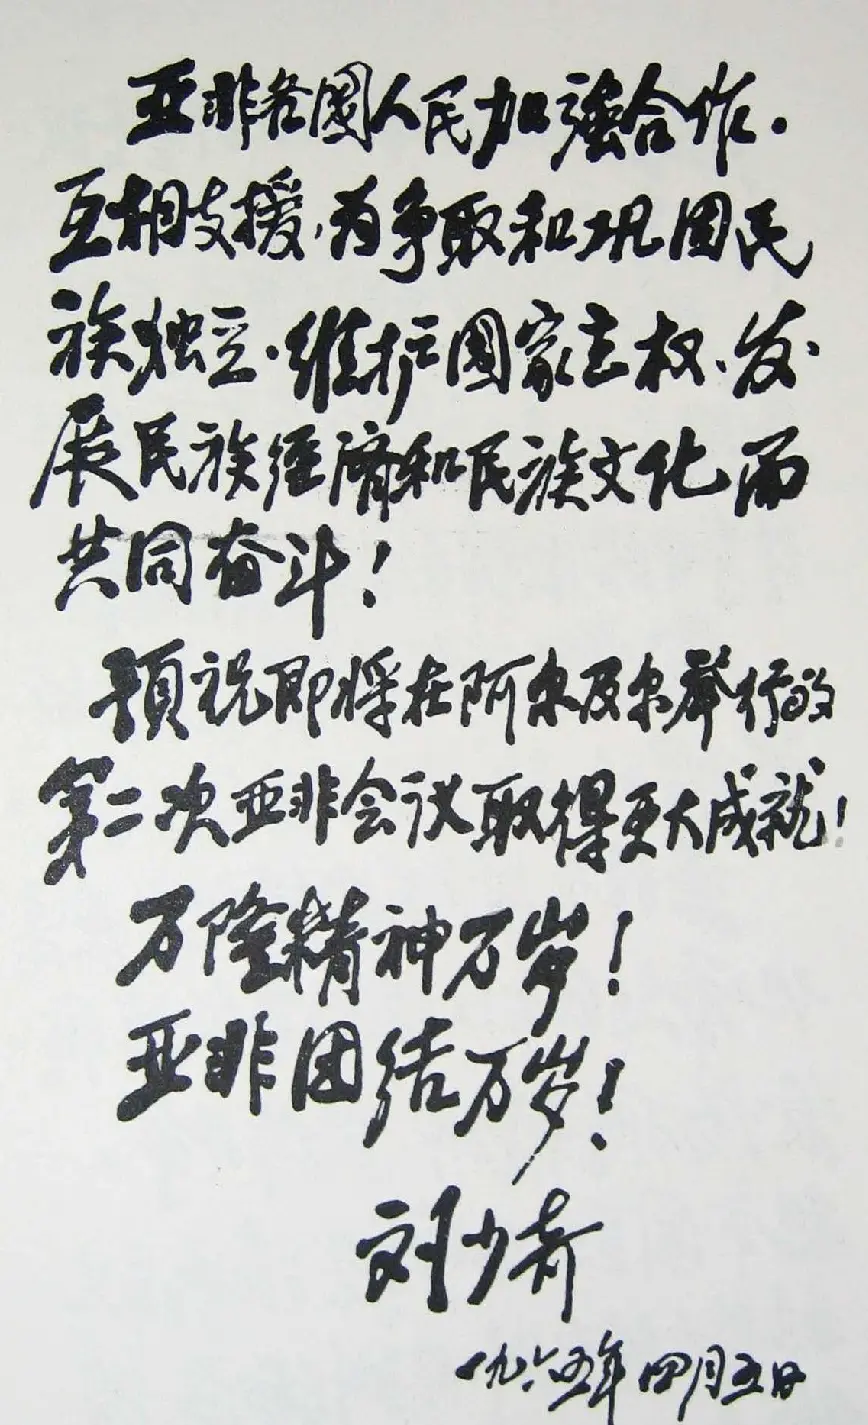 亚非各國人民加強合作.
互相支援,为争取和巩固民
族独立.维护國家主权、发
展民族经濟和民族文化而
共同奋斗!
預祝即将在阿尔及尔举行的
第二次亚非会议取得更大成就!
万隆精神万岁!
亚非团结万岁!
刘少奇
一九六五年四月五日